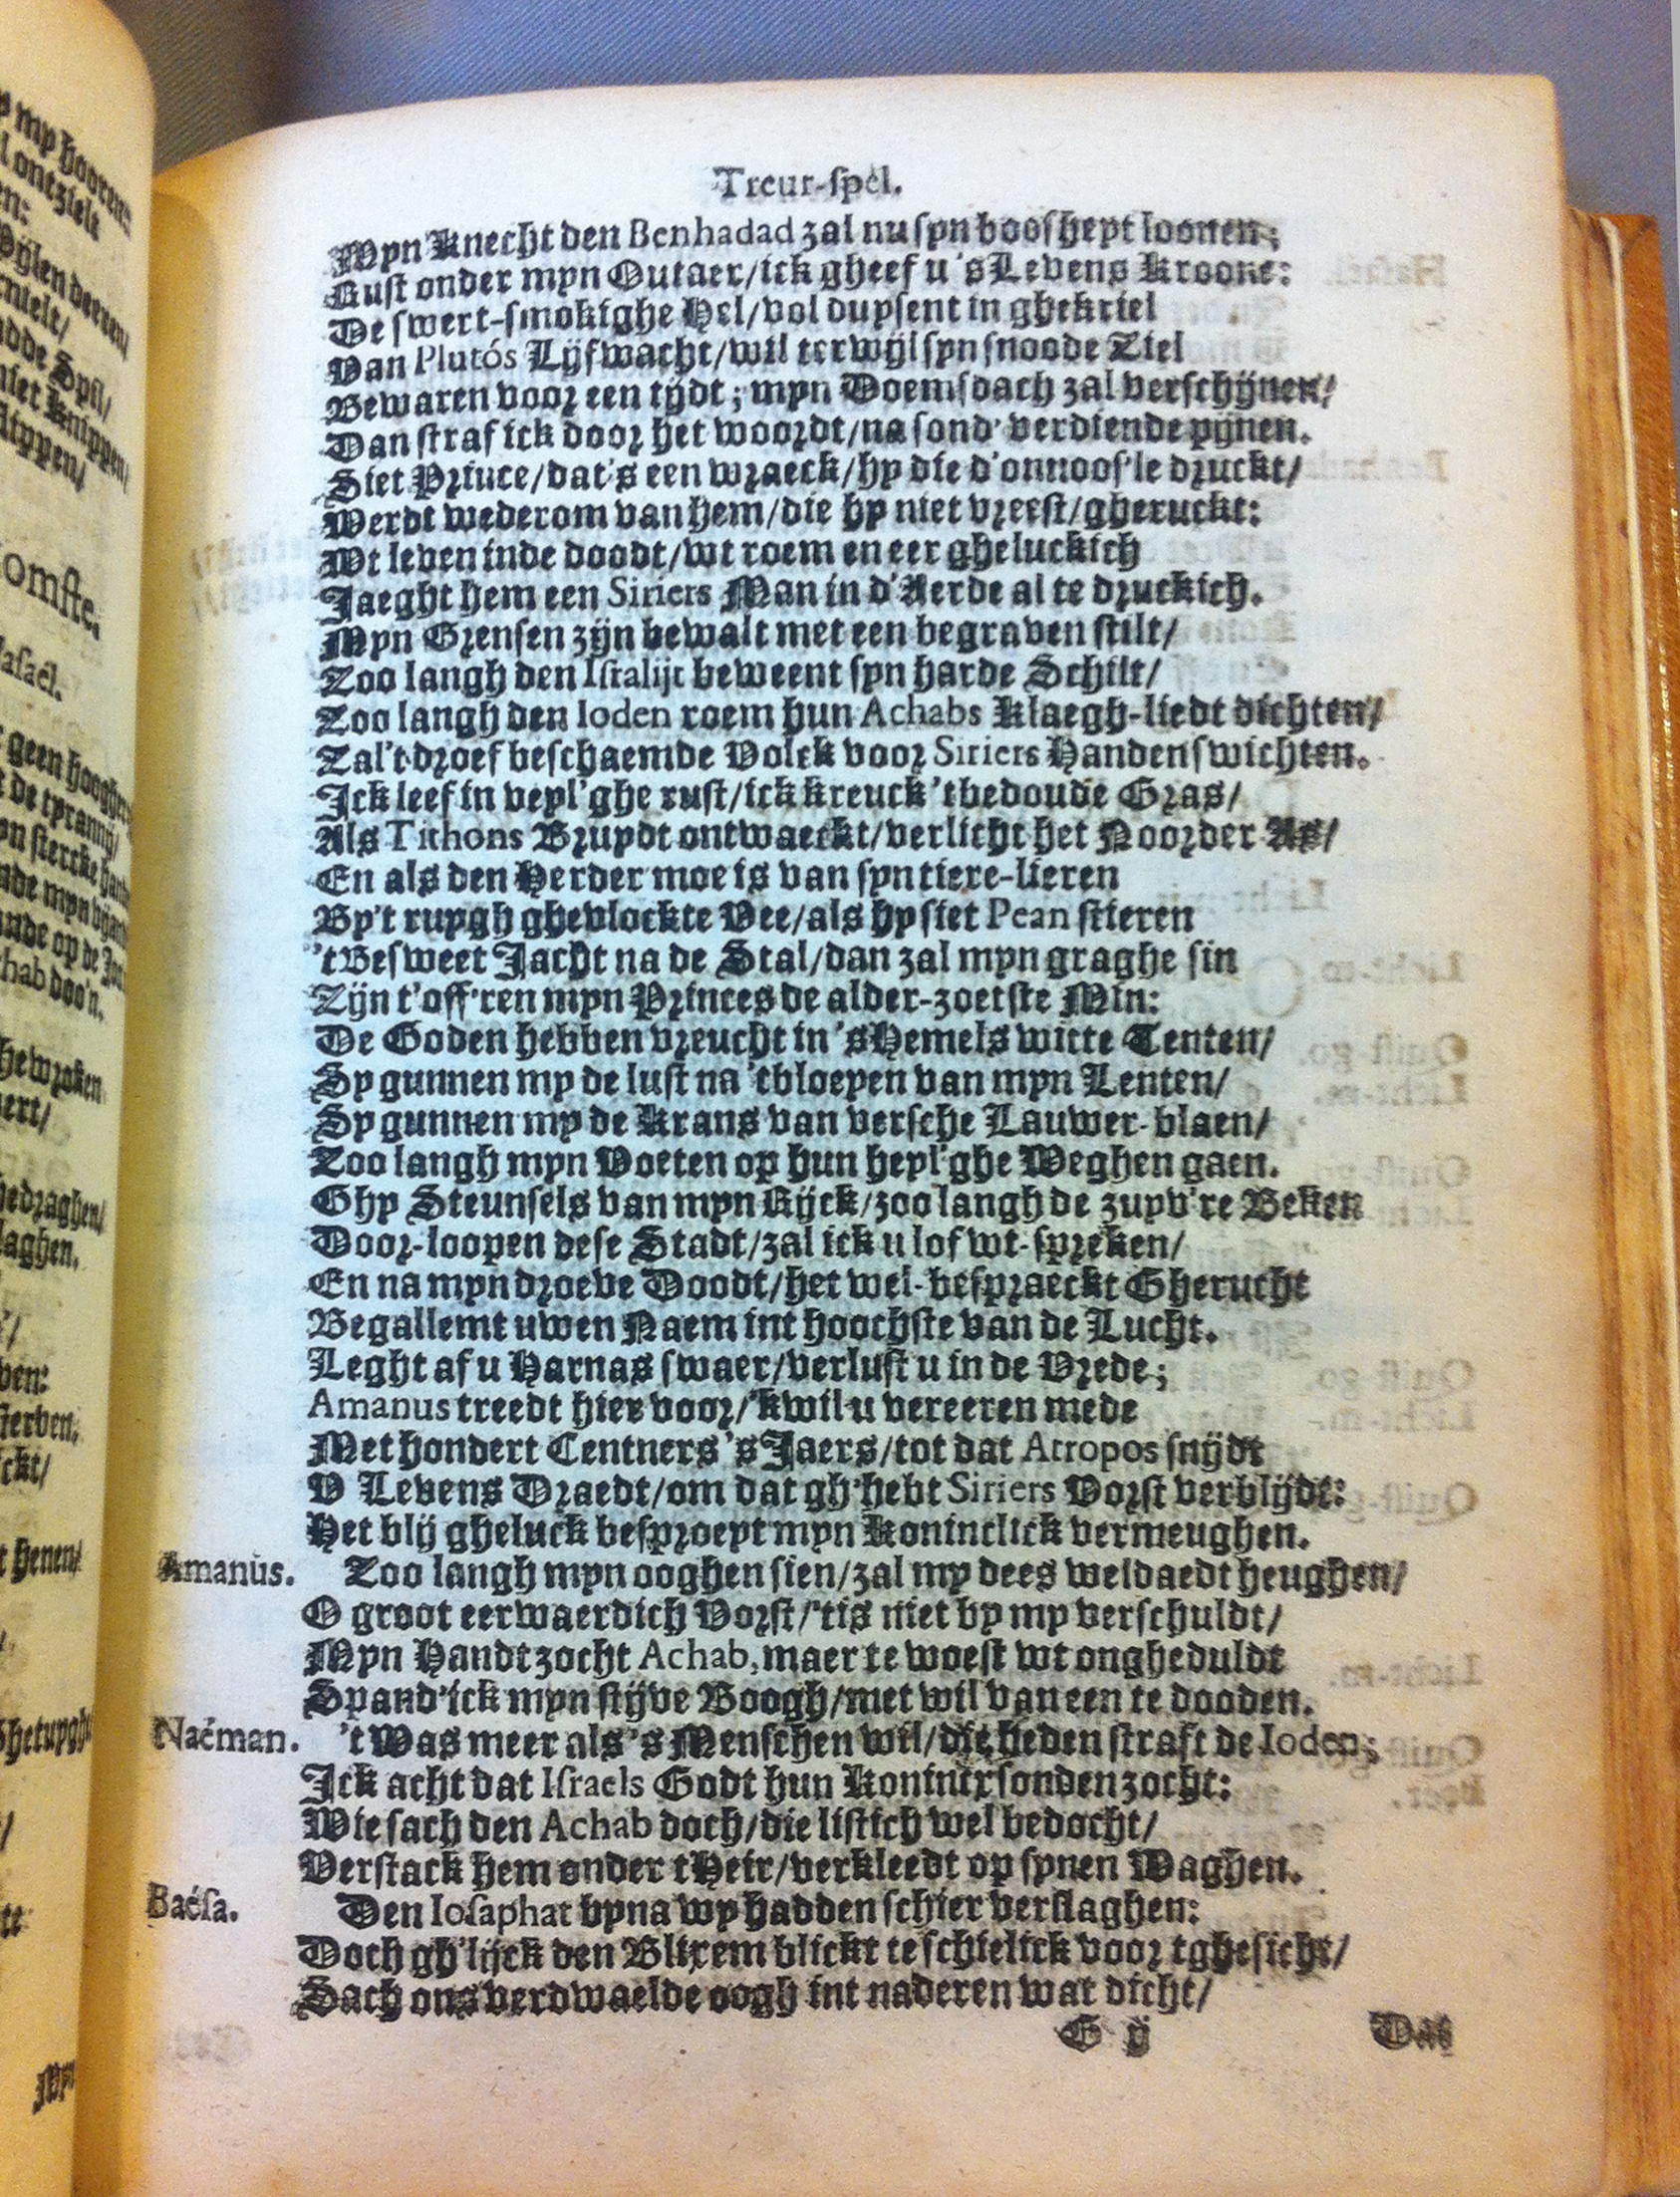 Treur-ſpel.
Myn Knecht den Benhadad zal nu ſyn booſheyt loonen;
Rust onder myn Outaer/ick gheef u 's Levens Kroone:
De ſwert-ſmokighe Hel/vol duyſent in ghekriel
Van Plutós Lijfwacht/wil terwijl ſyn ſnoode Ziel
Bewaren voor een tijdt; myn Doemſdach zal verſchijnen/
Dan ſtraf ick door het woordt/na ſond' verdiende pijnen.
Siet Prince/dat's een wraeck/hy die d'onnooſ'le druckt/
Werdt wederom van hem/die hy niet vreeſt/gheruckt:
Wt leven inde doodt/wt roem en eer gheluckich
Jaeght hem een Siriers Man in d'Aerde al te druckich.
Myn Grenſen zijn bewalt met een begraven ſtilt/
Zoo langh den Iſralijt beweent ſyn harde Schilt/
Zoo langh den Ioden roem hun Achabs Klaegh-liedt dichten/
Zal't droef beſchaemde Volck voor Siriers Handen ſwichten.
Ick leef in veyl'ghe ruſt/ick kreuck 'tbedoude Gras/
Als Tithons Bruydt ontwaeckt/verlicht het Noorder As/
En als den Herder moe is van ſyn tiere-lieren
By't ruygh ghevlockte Vee/als hy ſiet Pean ſtieren
't Beſweet Jacht na de Stal/dan zal myn graghe ſin
Zijn t'off'ren myn Princes de alder-zoetſte Min:
De Goden hebben vreucht in 's Hemels witte Tenten/
Sy gunnen my de luſt na 'tbloeyen van myn Lenten/
Sy gunnen my de Krans van verſche Lauwer-blaen/
Zoo langh myn Voeten op hun heyl'ghe Weghen gaen.
Ghy Steunſels van myn Rijck/zoo langh de zuyv're Beken
Door-loopen deſe Stadt/zal ick u lof wt-ſpreken/
En na myn droeve Doodt/het wel-beſpraeckt Gherucht
Begallemt uwen Naem int hoochſte van de Lucht.
Leght af u Harnas ſwaer/verluſt u in de Vrede;
Amanus treedt hier voor/'k wil u vereeren mede
Met hondert Centners 's Jaers/tot dat Atropos ſnijdt
V Levens Draedt/om dat gh'hebt Siriers Vorſt verblijdt:
Het blij gheluck beſproeyt myn Koninclick vermeughen.
Amanus. Zoo langh myn ooghen ſien/zal my dees weldaedt heughen/
O groot eerwaerdich Vorſt/'tis niet by my verſchuldt/
Myn Handt zocht Achab, maer te woeſt wt ongheduldt
Spand' ick myn ſtijve Boogh/met wil van een te dooden.
Naéman. 't Was meer als 's Menſchen wil/die heden ſtraft de Ioden;
Ick acht dat Iſraels Godt hun Konincx ſonden zocht:
Wie ſach den Achab doch/die liſtich wel bedocht/
Verſtack hem onder tHeir/verkleedt op ſynen Waghen.
Baéſa. Den Ioſaphat byna wy hadden ſchier verſlaghen:
Doch gh'lijck den Blixem blickt te ſchielick voor tgheſicht/
Sach ons verdwaelde oogh int naderen wat dicht/
G ij Dat